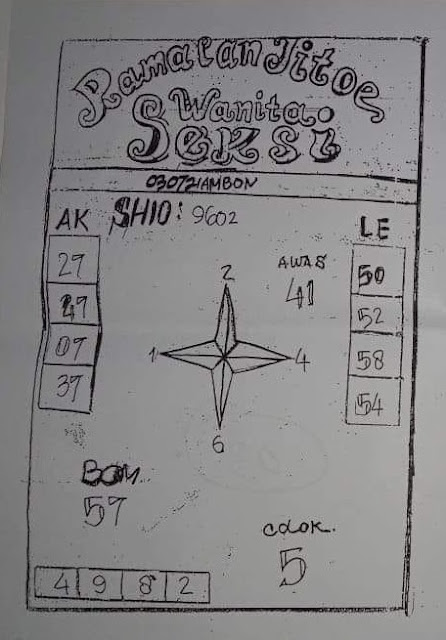 Ramalan Jitoe
Wanita
Seksi
03072 AMBON
AK SHIO: 9602 LE
27
47
07
37
AWAS
41
50
52
58
54
2
1 4
6
BOM
57
COLOK.
5
4 9 8 2